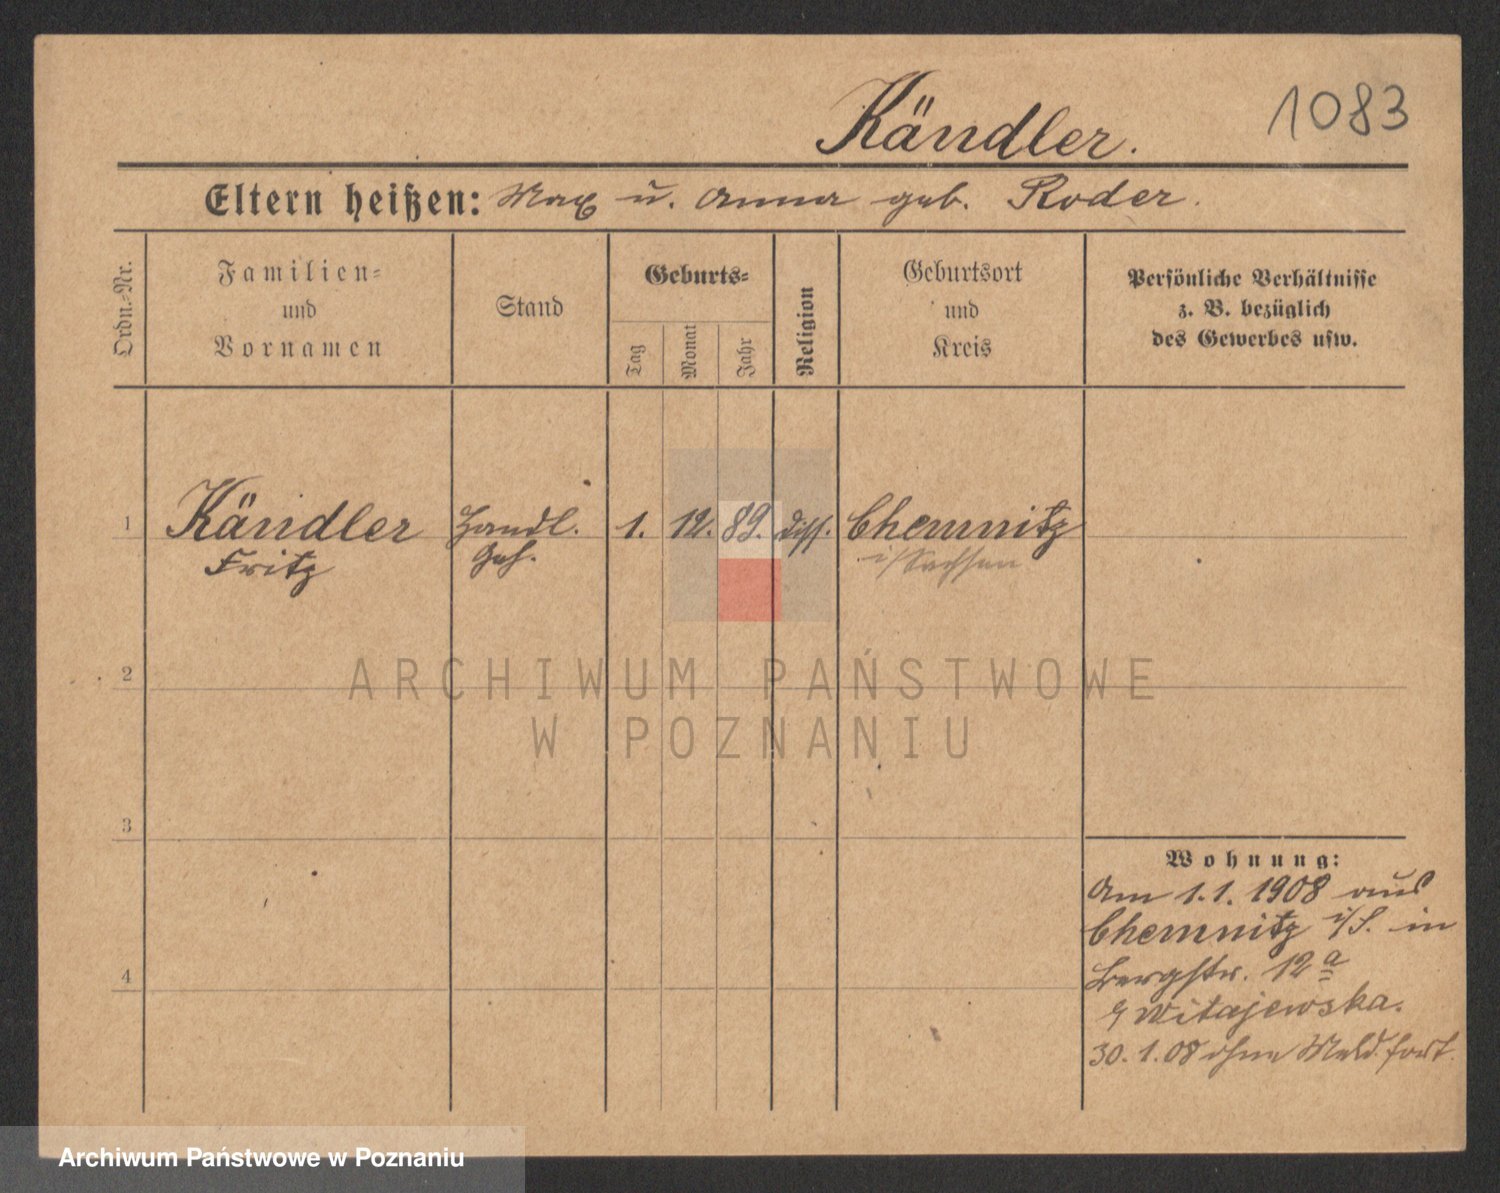 1083
Kändler.
Eltern heißen: Max u. Anna geb. Roder.
Ordn.-Nr.
Familien-
und
Vornamen
Stand
Geburts-
Tag
Monat
Jahr
Religion
Geburtsort
und
Kreis
Persönliche Verhältnisse
z. B. bezüglich
des Gewerbes usw.
1 Kändler Handl. 1. 12. 89. diss. Chemnitz
Fritz Geh. i/Sachsen
2
3
4
Wohnung:
Am 1.1.1908 aus
Chemnitz i/S. in
Bergstr. 12a
Witajewska.
30.1.08 ohne Meld. fort
ARCHIWUM PAŃSTWOWE
W POZNANIU
Archiwum Państwowe w Poznaniu